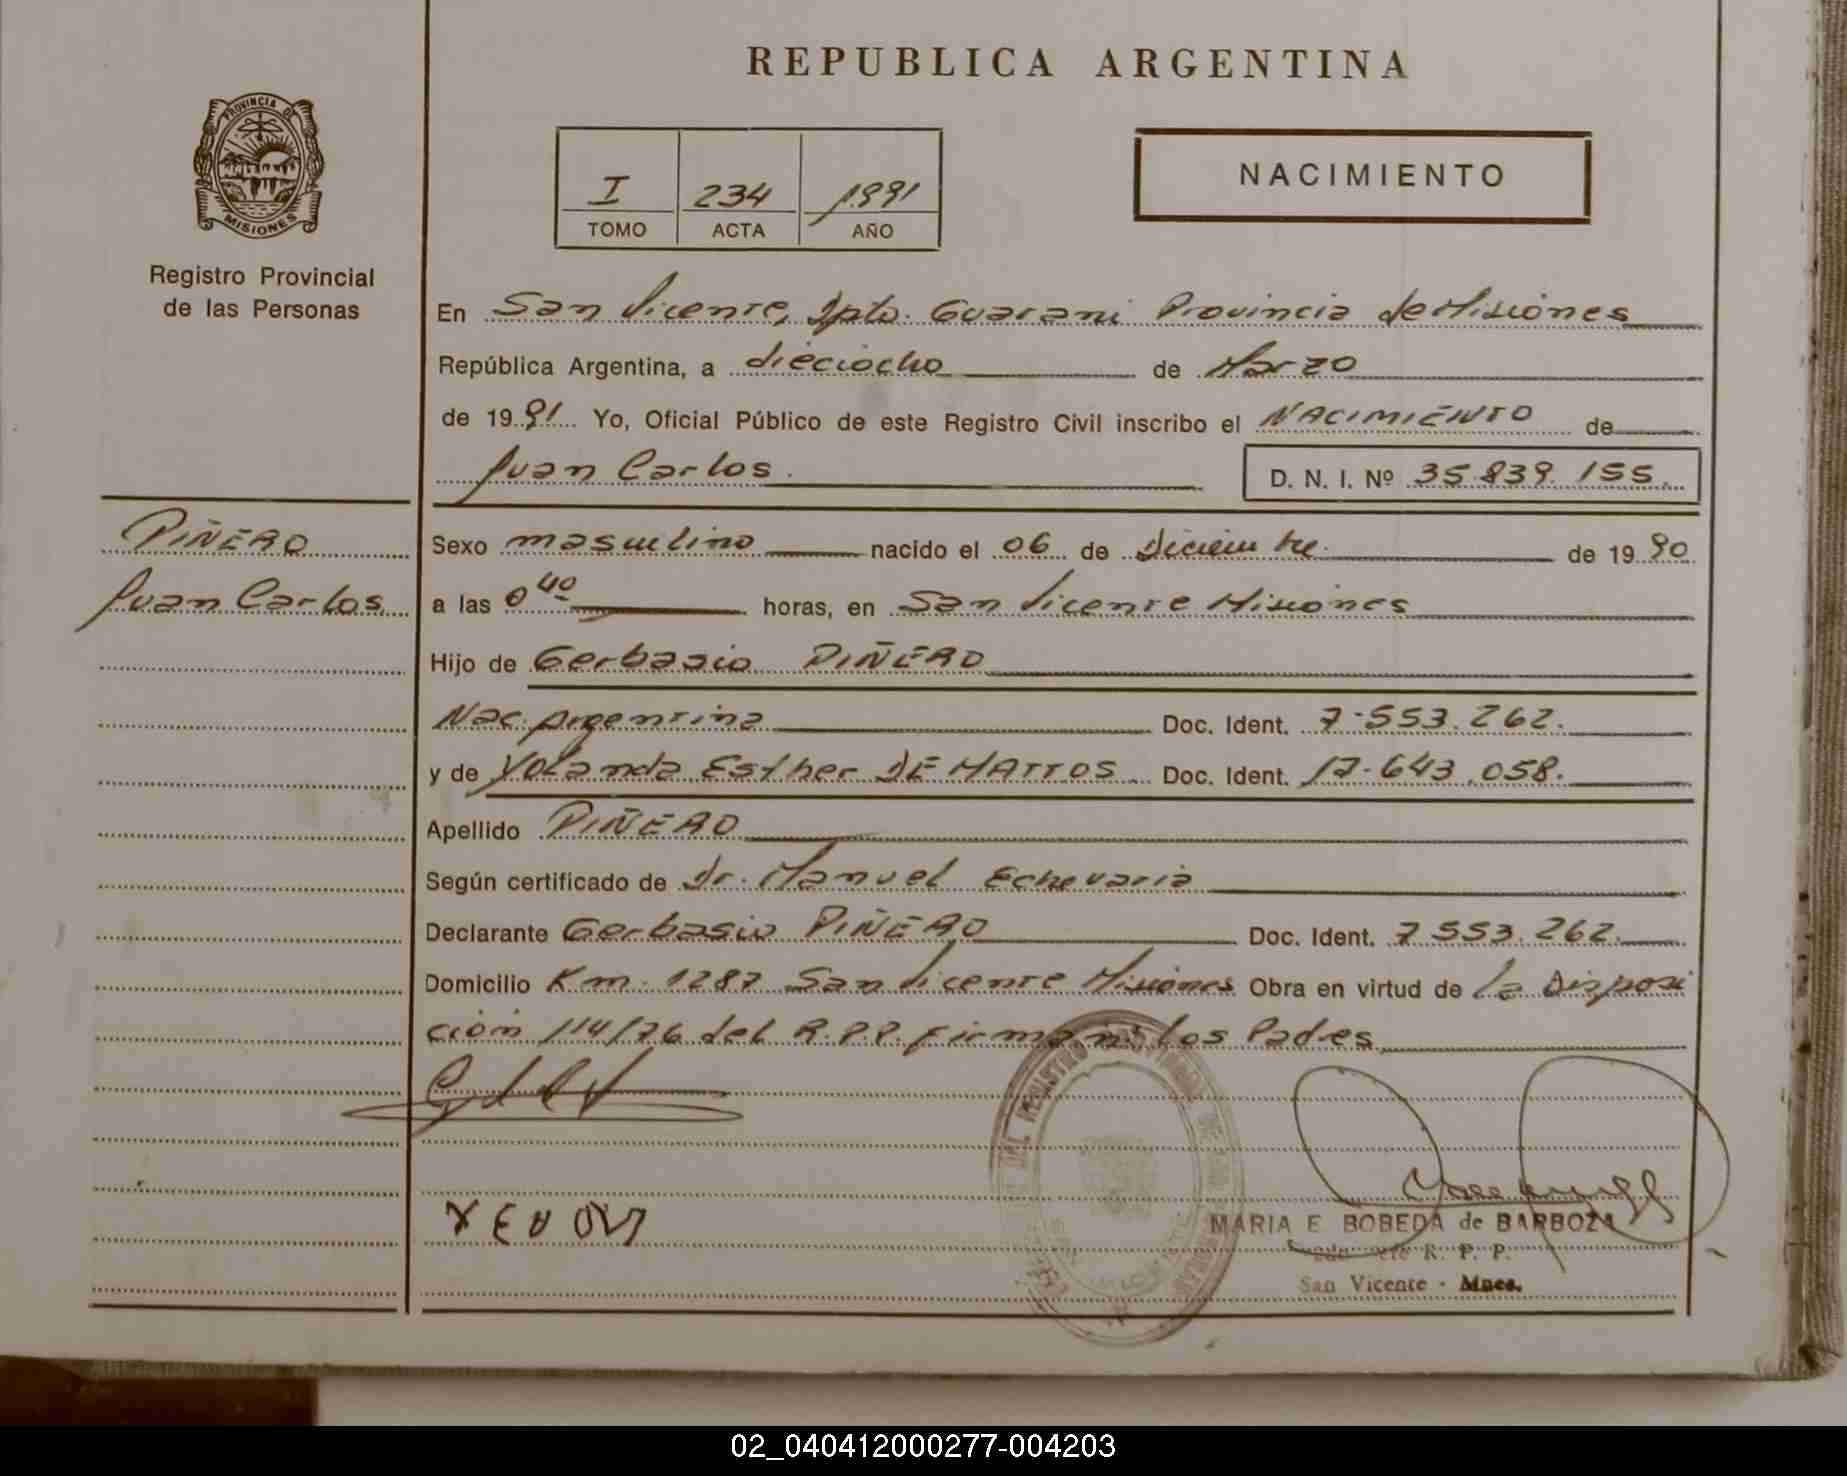 REPUBLICA ARGENTINA
PROVINCIA DE
MISIONES
Registro Provincial
de las Personas
I 234 1991
TOMO ACTA AÑO
NACIMIENTO
En San Vicente, Dpto. Guarani Provincia de Misiones
República Argentina, a dieciocho de Marzo
de 1991 Yo, Oficial Público de este Registro Civil inscribo el NACIMIENTO de
Juan Carlos. D. N. I. Nº 35.839.155.
PIÑERO
Juan Carlos
Sexo masculino nacido el 06 de Diciembre. de 1990
a las 0 40 horas, en San Vicente Misiones
Hijo de Gerbasio PIÑERO
Nac. Argentina Doc. Ident. 7.553.262.
y de Yolanda Esther DE MATTOS Doc. Ident. 17.643.058.
Apellido PIÑERO
Según certificado de Dr. Manuel Echevaria
Declarante Gerbasio PIÑERO Doc. Ident. 7.553.262.
Domicilio Km. 1287 San Vicente Misiones Obra en virtud de la Disposi
ción 114/76 del R.P.P. firman: los Padres
MARIA E BOBEDA de BARBOZA
R. P. P.
San Vicente - Mnes.
02_040412000277-004203